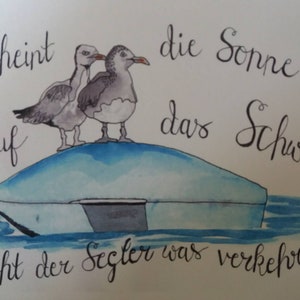 cheint die Sonne
uf das Schw
ht der Segler was verkehr